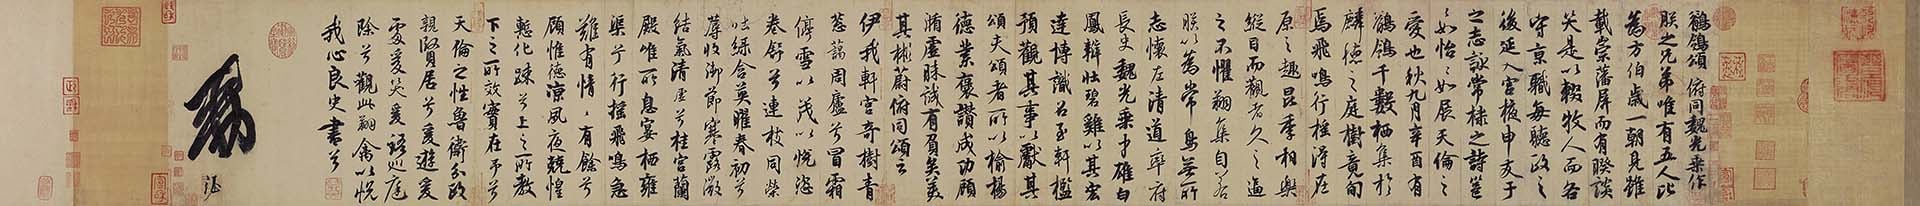 鶺鴒頌 俯同魏光乘作
朕之兄弟唯有五人比
為方伯歲一朝見雖
載崇藩屏而有睽談
笑是以輟牧人而各
守京職每聽政之
後延入宮掖申友于
之志詠常棣之詩邕
々如怡々如展天倫之
愛也秋九月辛酉有
鶺鴒千數栖集於
麟德之庭樹竟旬
焉飛鳴行搖得在
原之趣昆季相樂
縱目而觀者久之逼
之不懼翔集自若
朕以為常鳥無所
志懷左清道率府
長史魏光乘才雄白
鳳辯壯碧雞以其宏
達博識召至軒檻
預觀其事以獻其
頌夫頌者所以揄揚
德業褒讚成功顧
循虛昧誠有負矣美
其彬蔚俯同頌云
伊我軒宮奇樹青
蔥藹周廬兮冒霜
停雪以茂以悅恣
卷舒兮連枝同榮
吐綠含英曜春初兮
蓐收御節寒露微
結氣清虛兮桂宮蘭
殿唯所息宴栖雍
渠兮行搖飛鳴急
難有情々有餘兮
顧惟德涼夙夜兢惶
慙化疎兮上之所教
下之所效實在予兮
天倫之性魯衛分政
親賢居兮爰遊爰
處爰笑爰語巡庭
除兮觀此翔禽以悅
我心良史書兮
敕